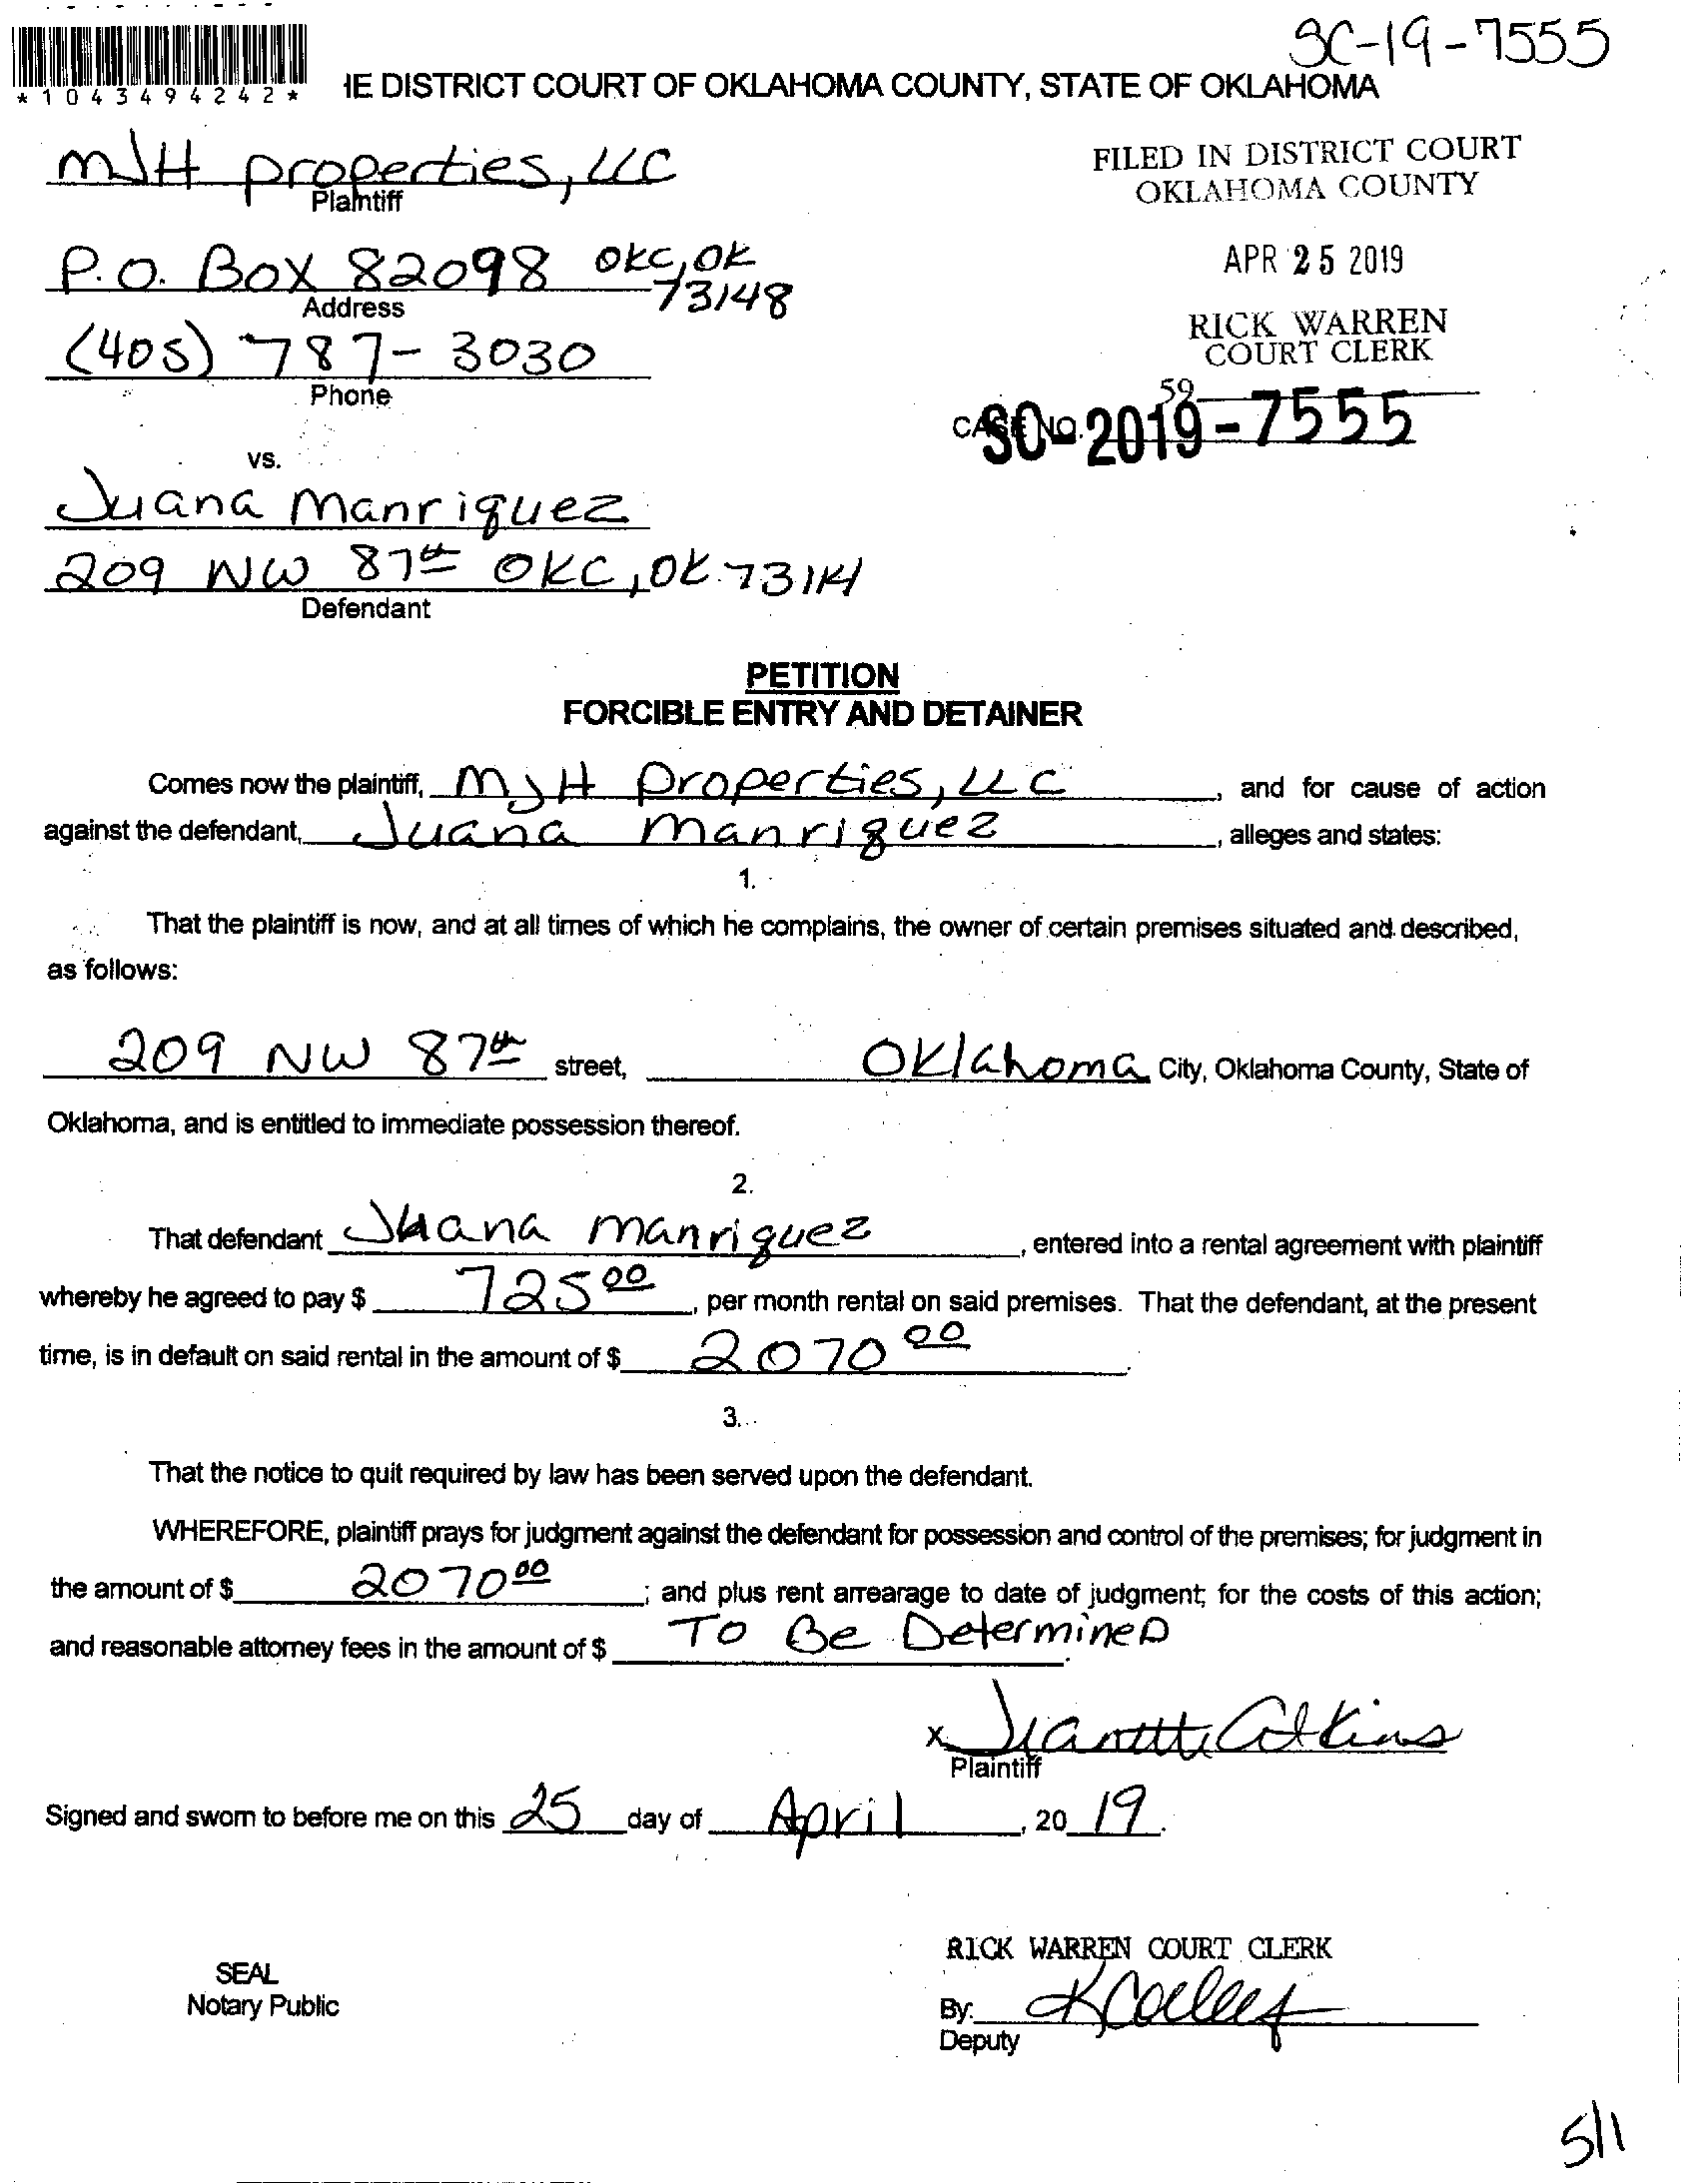 SC-19-7555
*1043494242*
IE DISTRICT COURT OF OKLAHOMA COUNTY, STATE OF OKLAHOMA
MJH properties, LLC
Plaintiff
FILED IN DISTRICT COURT
OKLAHOMA COUNTY
P.O. Box 82098 OKC, OK 73148
Address
APR 25 2019
(405) 787-3030
Phone
RICK WARREN
COURT CLERK
59
CASE NO. SC-2019-7555
vs.
Juana Manriquez
209 NW 87th OKC, OK 73114
Defendant
PETITION
FORCIBLE ENTRY AND DETAINER
Comes now the plaintiff, MJH Properties, LLC, and for cause of action
against the defendant, Juana Manriquez, alleges and states:
1.
That the plaintiff is now, and at all times of which he complains, the owner of certain premises situated and described,
as follows:
209 NW 87th street, Oklahoma City, Oklahoma County, State of
Oklahoma, and is entitled to immediate possession thereof.
2.
That defendant Juana Manriquez, entered into a rental agreement with plaintiff
whereby he agreed to pay $ 725 00, per month rental on said premises. That the defendant, at the present
time, is in default on said rental in the amount of $ 2070 00.
3.
That the notice to quit required by law has been served upon the defendant.
WHEREFORE, plaintiff prays for judgment against the defendant for possession and control of the premises; for judgment in
the amount of $ 2070 00; and plus rent arrearage to date of judgment; for the costs of this action;
and reasonable attorney fees in the amount of $ To Be Determined.
x Jeanette Atkins
Plaintiff
Signed and sworn to before me on this 25 day of April, 20 19.
RICK WARREN COURT CLERK
SEAL
Notary Public
By:
Deputy
5/1